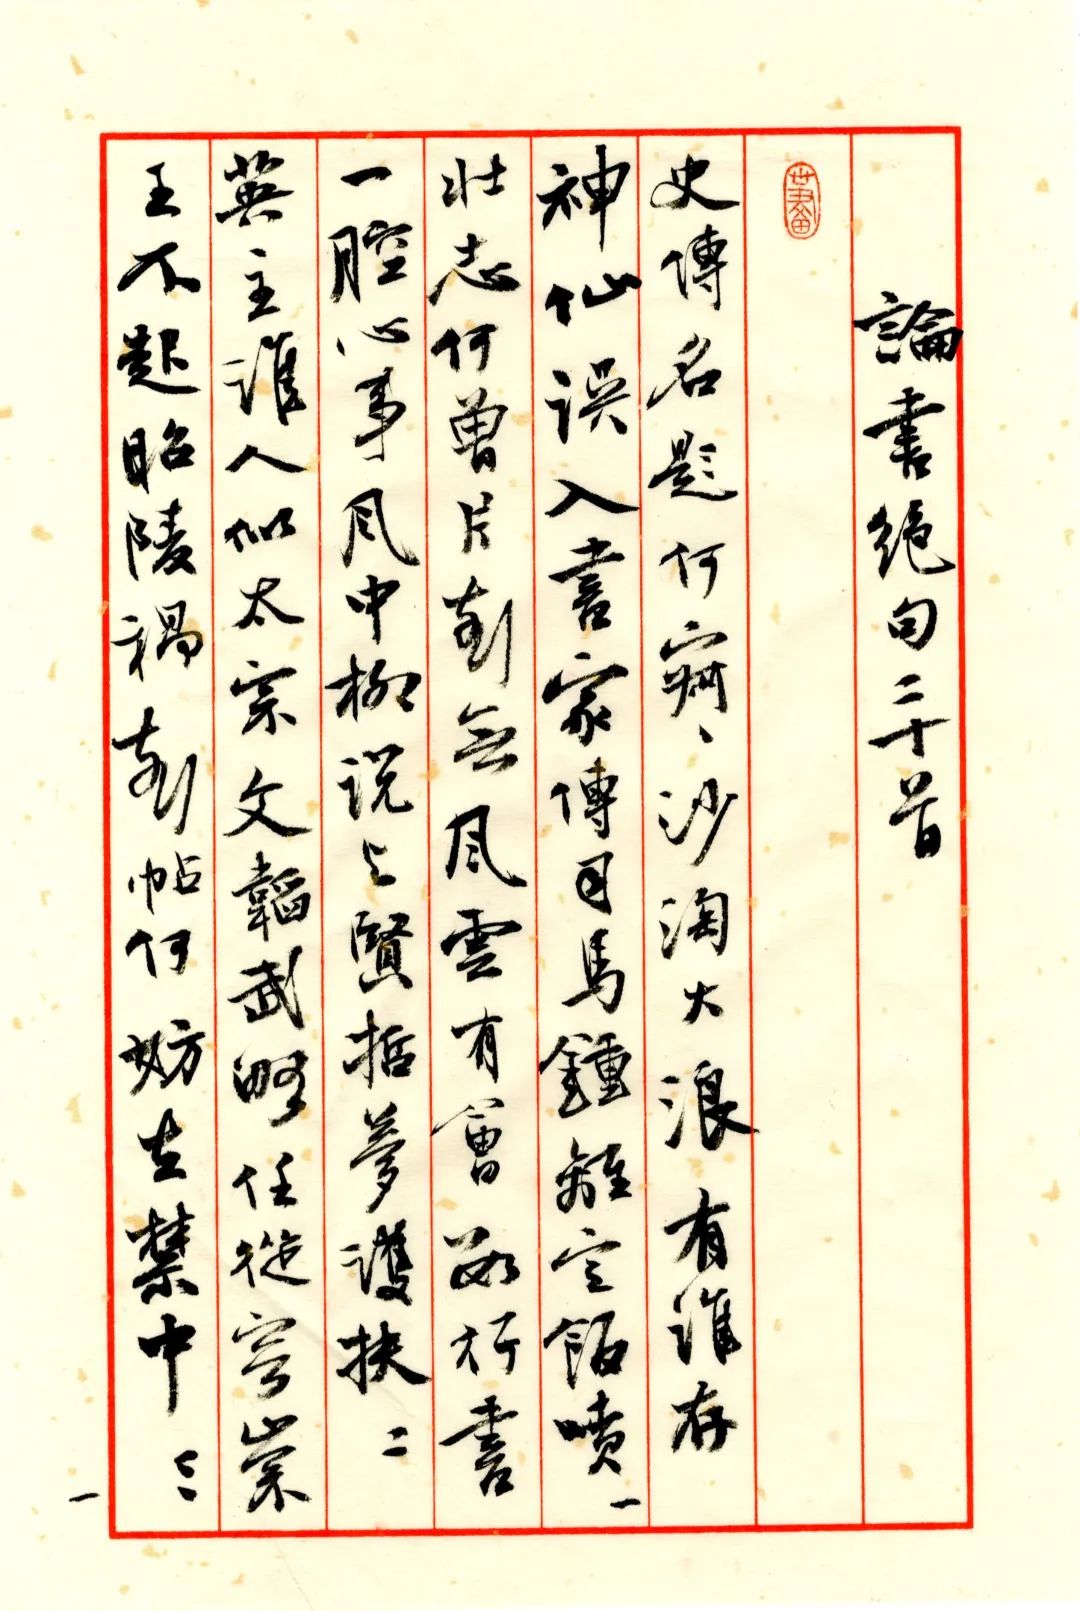 論書絕句二十首
史傳名題何沙淘大浪有誰存
神仙誤入書家傳司馬鍾離空飯噴 一
壯志何曾片刻無風雲有會行書
一腔心事風中柳說与賢哲夢護扶 二
英主誰人似太宗文韜武略任從容崇
王不起昭陵禍刻帖何妨在禁中 三
一